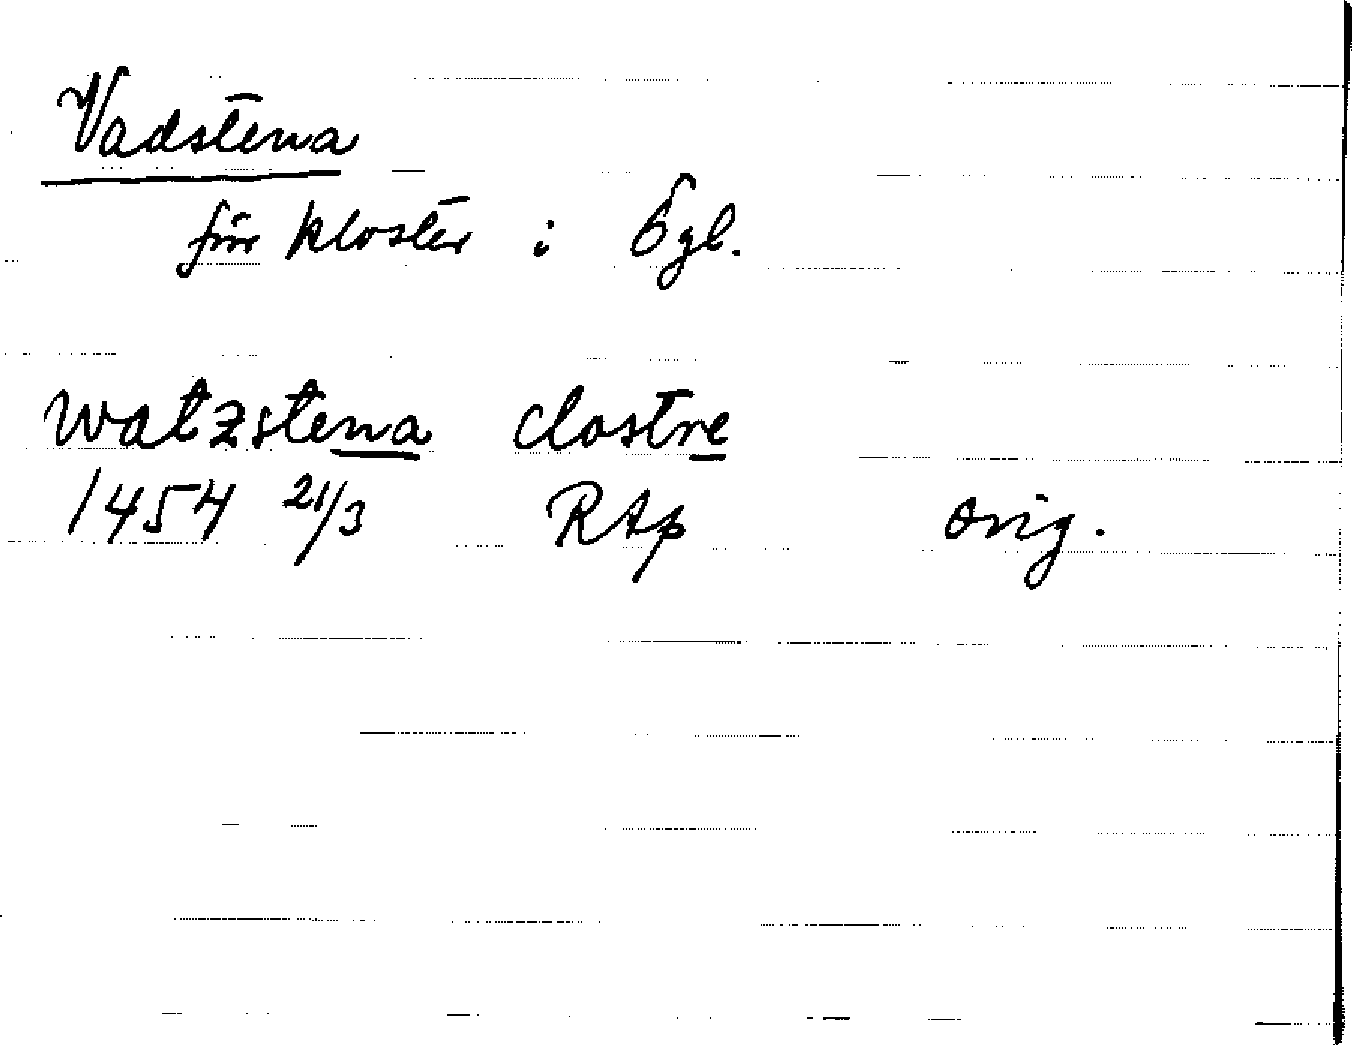 Vadstena
förr kloster i Ögl.
watzstena clostre
1454 21/3 RAp orig.